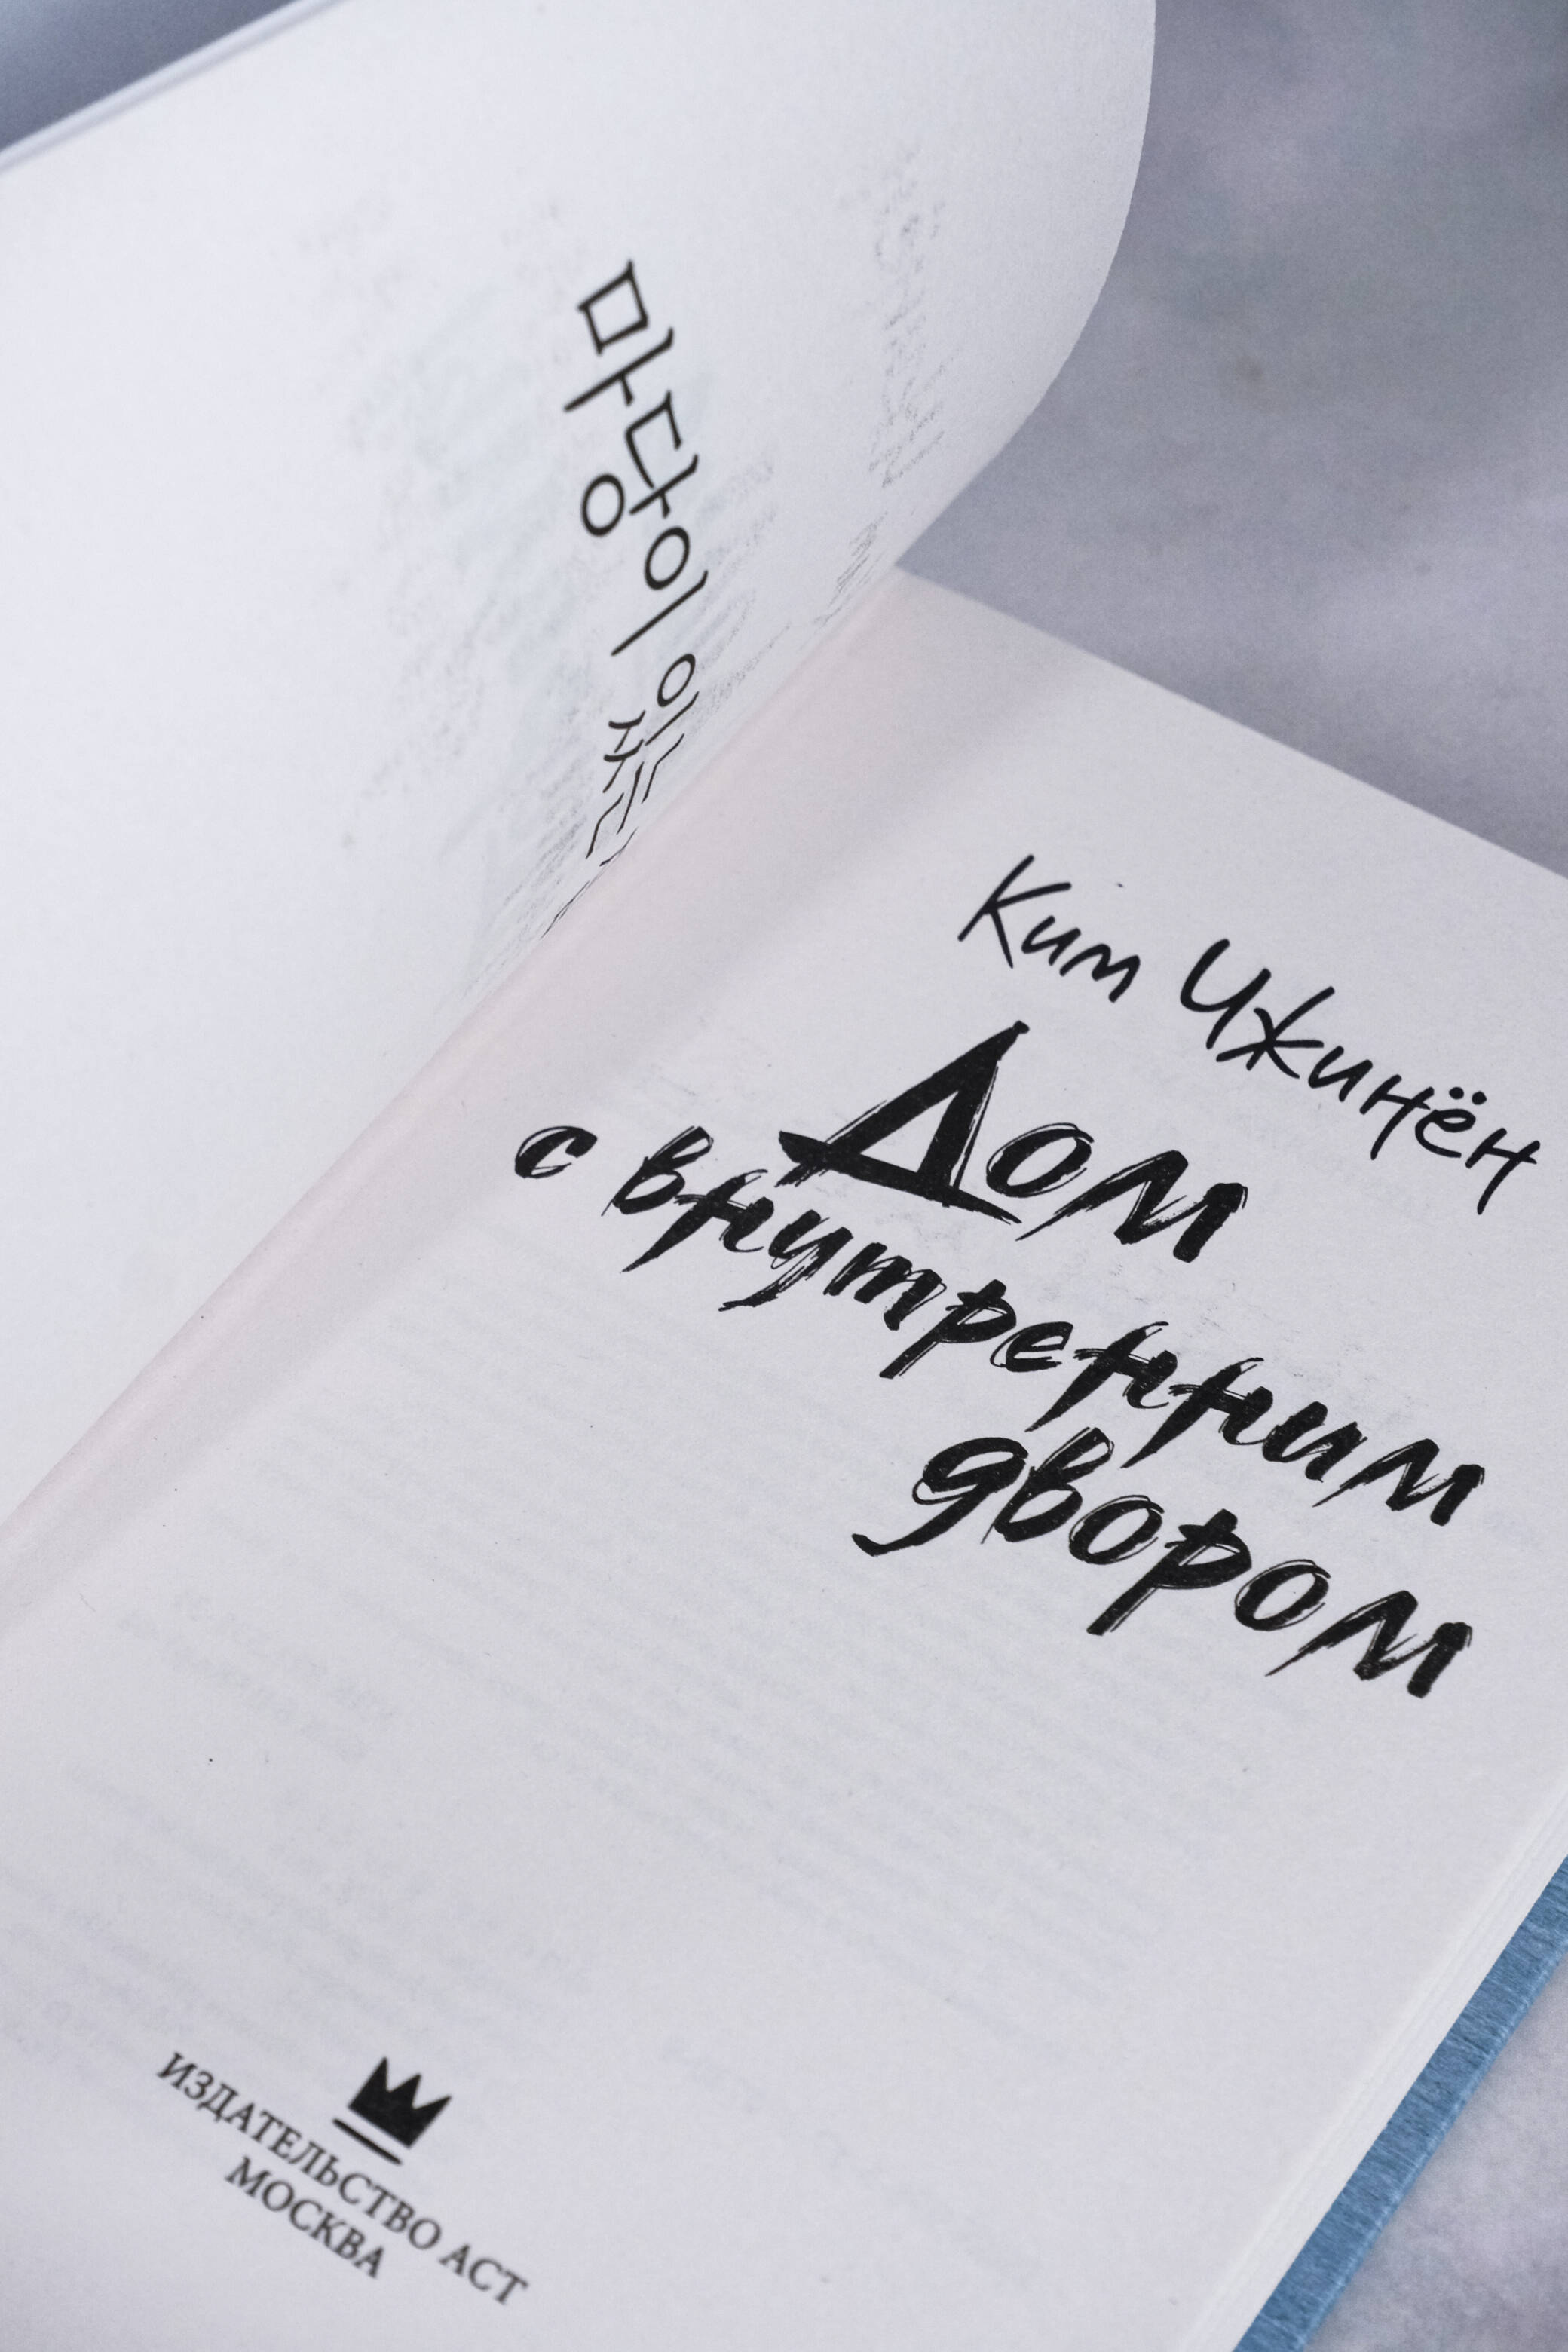 마당이 있는
Ким Чжинён
Дом
с внутренним
двором
ИЗДАТЕЛЬСТВО АСТ
МОСКВА